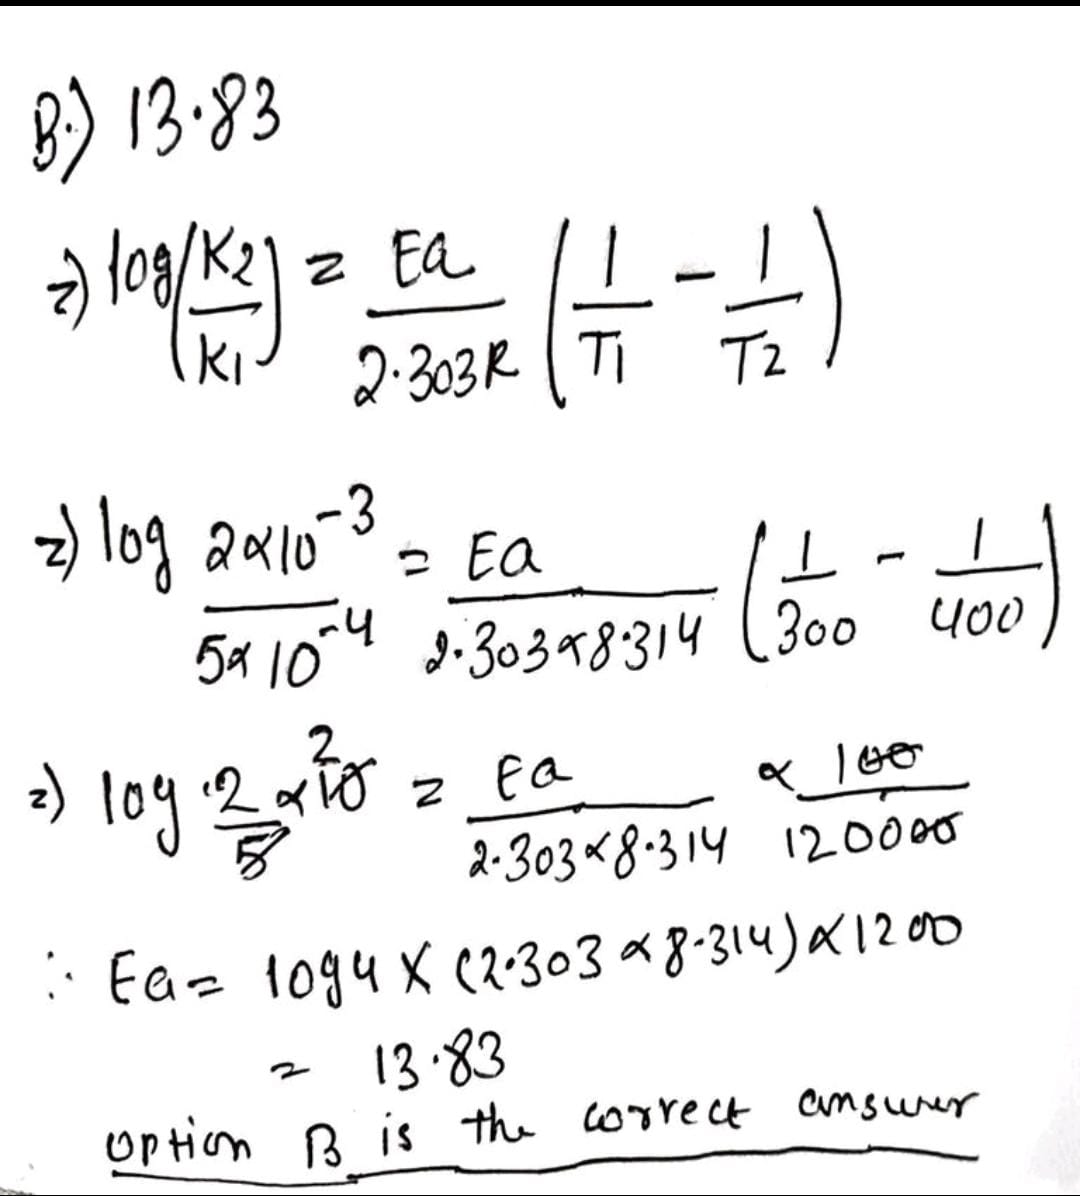 B.) 13.83
⇒ log(K2/K1) = Ea/2.303R (1/T1 - 1/T2)
⇒ log 2×10^-3/5×10^-4 = Ea/2.303×8.314 (1/300 - 1/400)
⇒ log 2/5 × 10 2 = Ea/2.303×8.314 × 100/120000
∴ Ea = log4 × (2.303 × 8.314) × 1200
= 13.83
option B is the correct answer